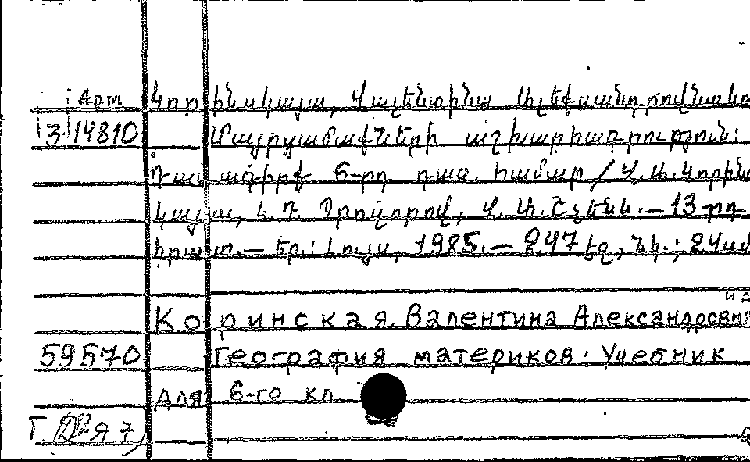 Арт. Կորինսկայա, Վալենտինա Ալեքսանդրովնա
3/14810 Մայրցամաքների աշխարհագրություն:
Դասագիրք 6-րդ դաս. համար / Վ. Ա. Կորինս
կայա, Լ. Դ. Պրոզորով, Վ. Ա. Շչենև. — 13-րդ
հրատ. — Եր.: Լույս, 1985. — 247 էջ, նկ.; 24սմ
Коринская, Валентина Александровна
59570 География материков. Учебник
для 6-го кл